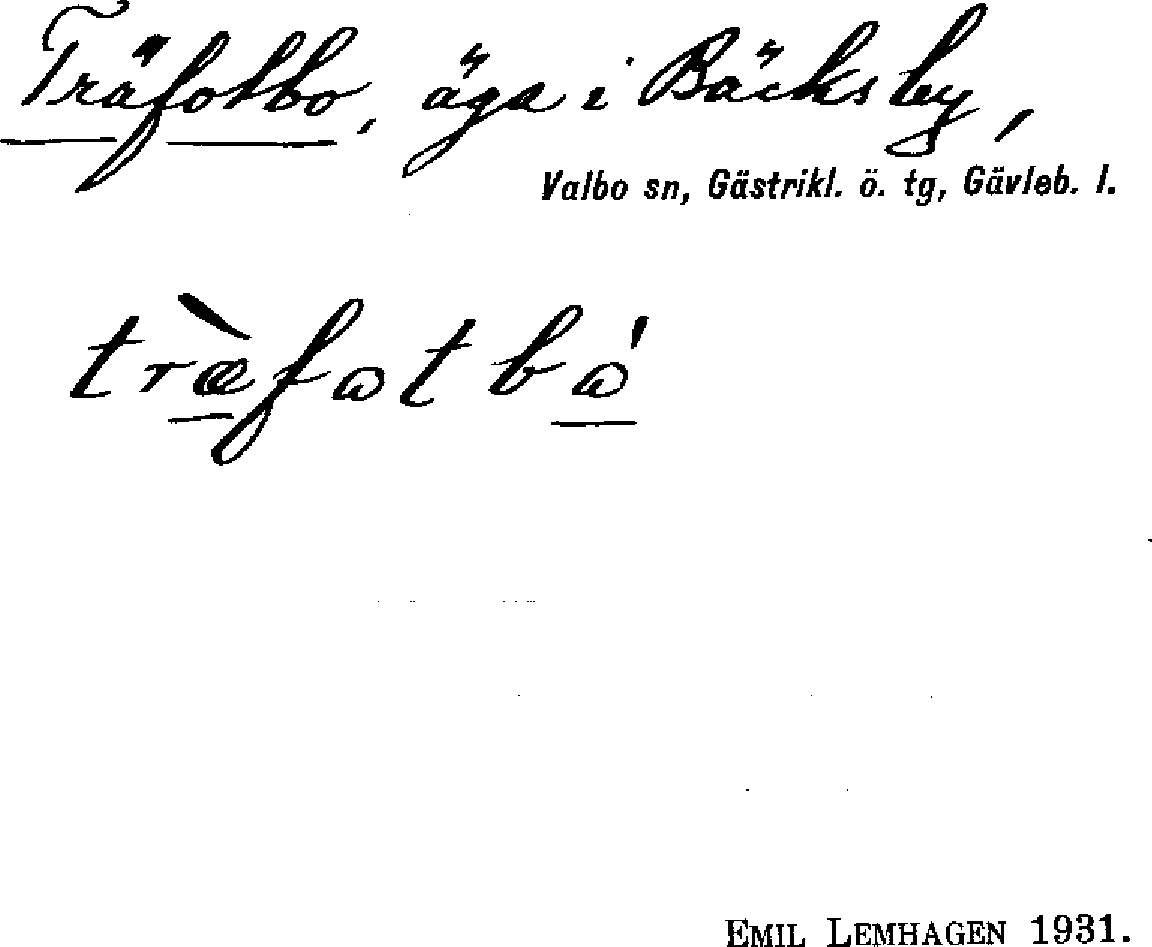 Träfotbo, äga i Bäcksby,
Valbo sn, Gästrikl. ö. tg, Gävleb. l.
træ̀fωtbώ
EMIL LEMHAGEN 1931.